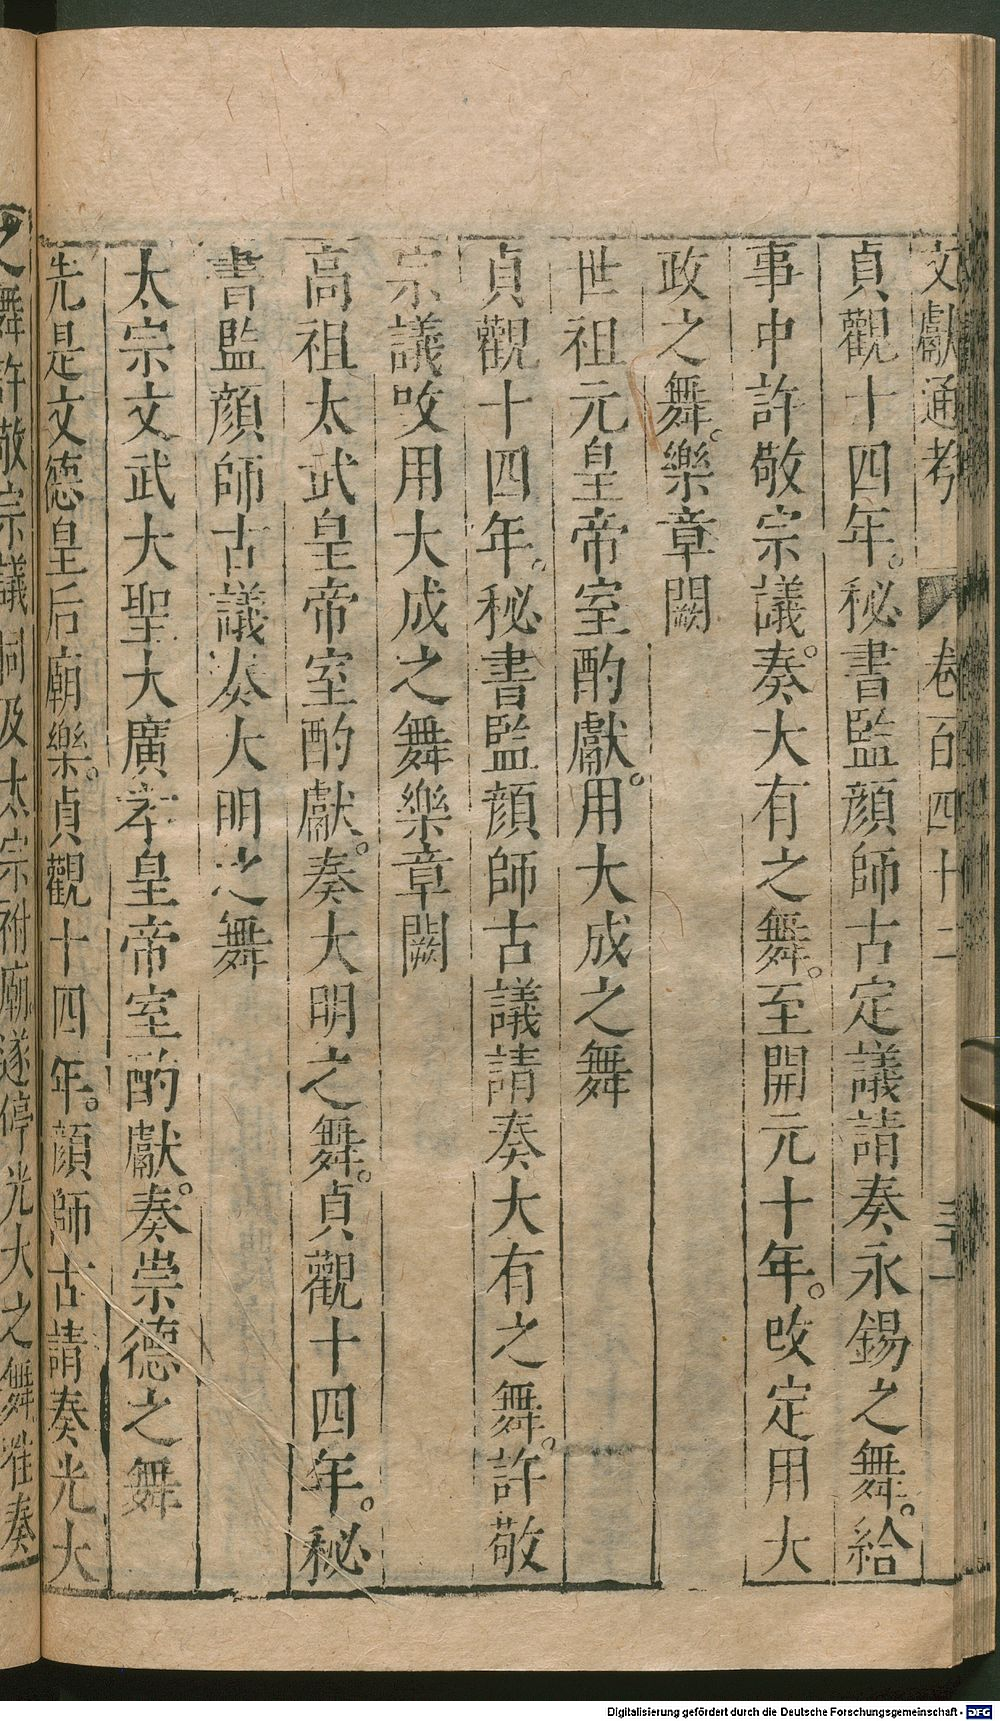 文獻通考 卷百四十二 三十一
貞觀十四年。秘書監顔師古定議請奏永錫之舞。給
事中許敬宗議。奏大有之舞。至開元十年。改定用大
政之舞。樂章闕
世祖元皇帝室酌獻。用大成之舞
貞觀十四年。秘書監顔師古議請奏大有之舞。許敬
宗議改用大成之舞樂章闕
高祖太武皇帝室酌獻。奏大明之舞。貞觀十四年。秘
書監顔師古議奏大明之舞
太宗文武大聖大廣孝皇帝室酌獻。奏崇德之舞
先是文德皇后廟樂。貞觀十四年。顔師古請奏光大
之舞許敬宗議同及太宗祔廟遂停光大之舞惟奏
Digitalisierung gefördert durch die Deutsche Forschungsgemeinschaft - DFG